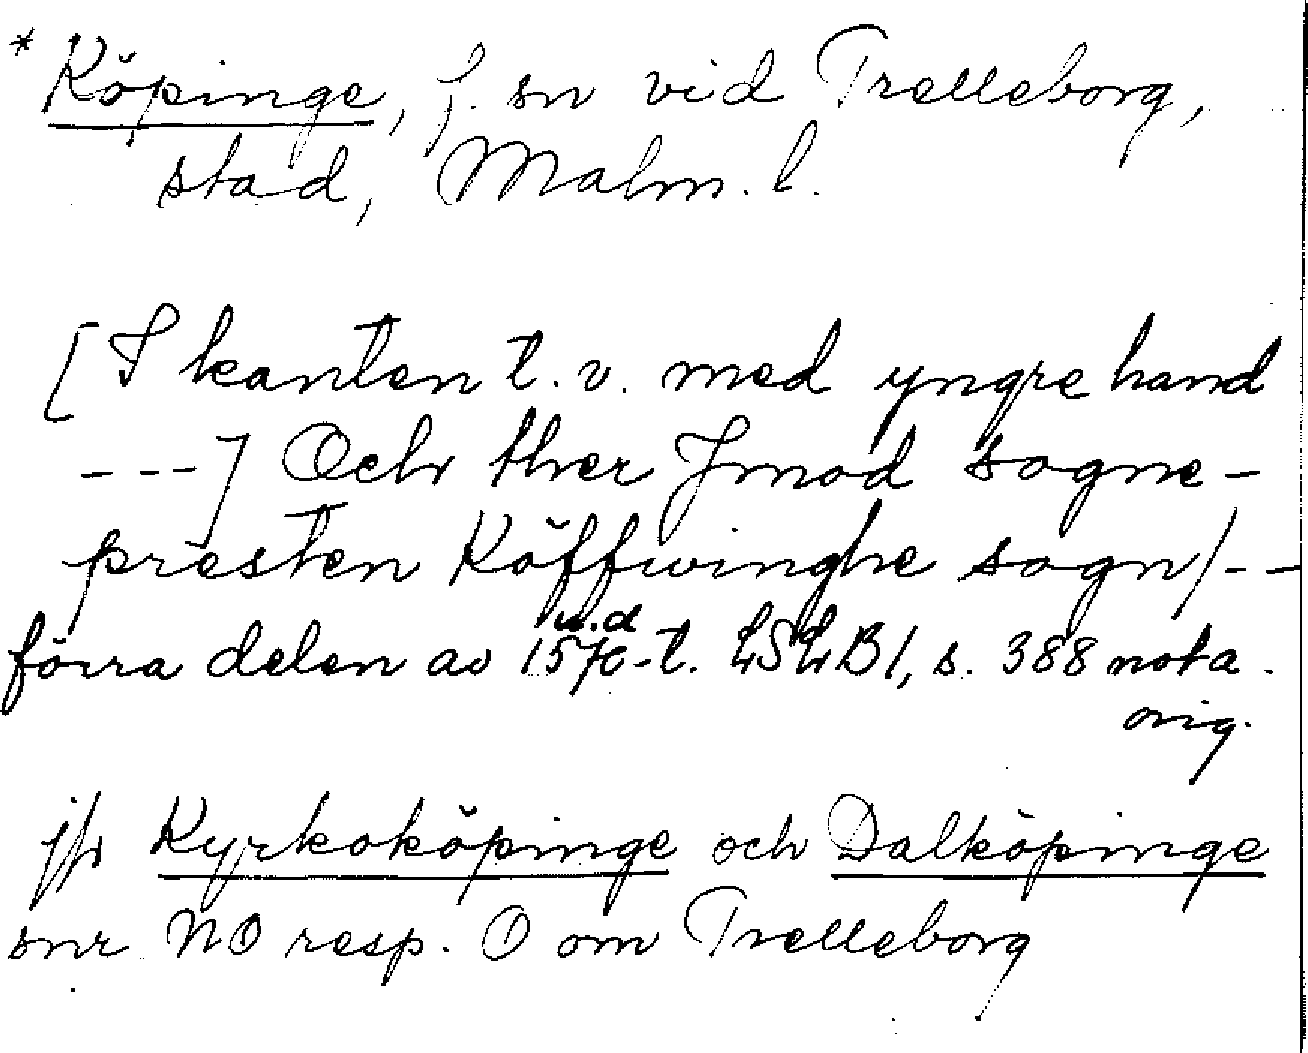 * Köpinge, f. sn vid Trelleborg,
stad, Malm. l.
[I kanten t. v. med yngre hand
---] Och ther Jmod sogne-
presten Köffwinghe sogn/--
u.d
förra delen av 1570-t. LSLB1, s. 388 nota.
orig.
jfr Kyrkoköpinge och Dalköpinge
snr NO resp. O om Trelleborg